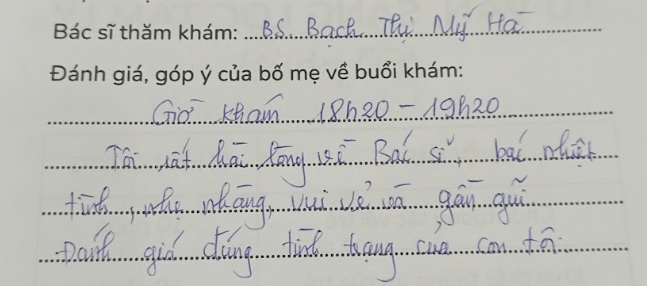 Bác sĩ thăm khám: BS. Bạch Thị Mỹ Hà
Đánh giá, góp ý của bố mẹ về buổi khám:
Giờ khám 18h20 - 19h20
Tôi rất hài lòng về Bác sĩ, bác nhiệt
tình, nhẹ nhàng, vui vẻ và gần gũi
Đánh giá đúng tình trạng của con tôi